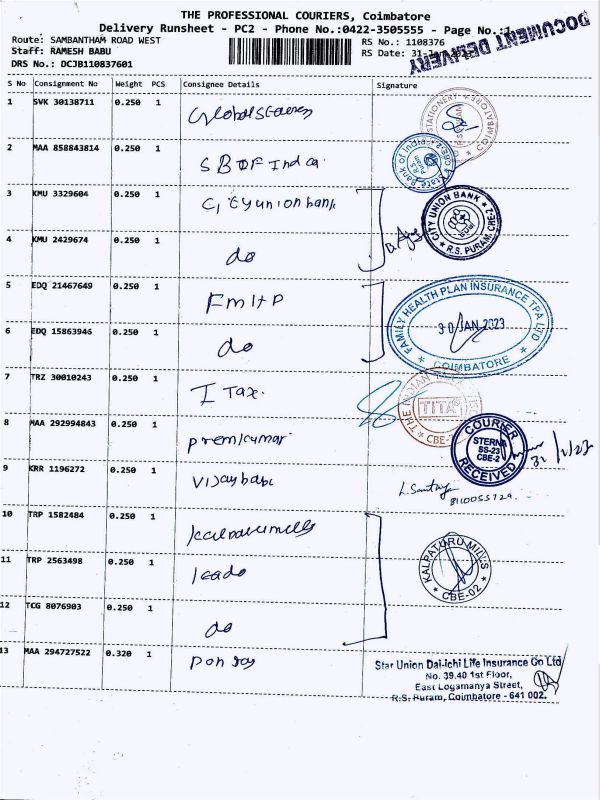 THE PROFESSIONAL COURIERS, Coimbatore
Delivery Runsheet - PC2 - Phone No.:0422-3505555 - Page No.:1
Route: SAMBANTHAM ROAD WEST
RS No.: 1108376
Staff: RAMESH BABU
RS Date: 31-Jan-2023
DOCUMENT DELIVERY
DRS No.: DCJB110837601
S No Consignment No Weight PCS Consignee Details Signature
1 SVK 30138711 0.250 1
STATIONERY
R.S. PURAM
COIMBATORE
2 MAA 858843814 0.250 1 SBOF India
State Bank of India
3 KMU 3329604 0.250 1 City union bank
CITY UNION BANK
R.S. PURAM, CBE-2
4 KMU 2429674 0.250 1 do
5 EDQ 21467649 0.250 1 FmItP
FAMILY HEALTH PLAN INSURANCE TPA LTD
30 JAN 2023
COIMBATORE
6 EDQ 15863946 0.250 1 do
7 TRZ 30010243 0.250 1 I Tax.
THE INDIAN
TITA
CBE-
8 MAA 292994843 0.250 1 premkumar
COURIER
STERNA
SS-23
CBE-2
RECEIVED
9 KRR 1196272 0.250 1 Vijaybabu
10 TRP 1582484 0.250 1
11 TRP 2563498 0.250 1
KALPATURU MILLS
CBE-02
12 TCG 8076903 0.250 1 do
13 MAA 294727522 0.320 1
Star Union Dai-ichi Life Insurance Co Ltd
No. 39.40 1st Floor,
East Logamanya Street,
R.S. Puram, Coimbatore - 641 002.